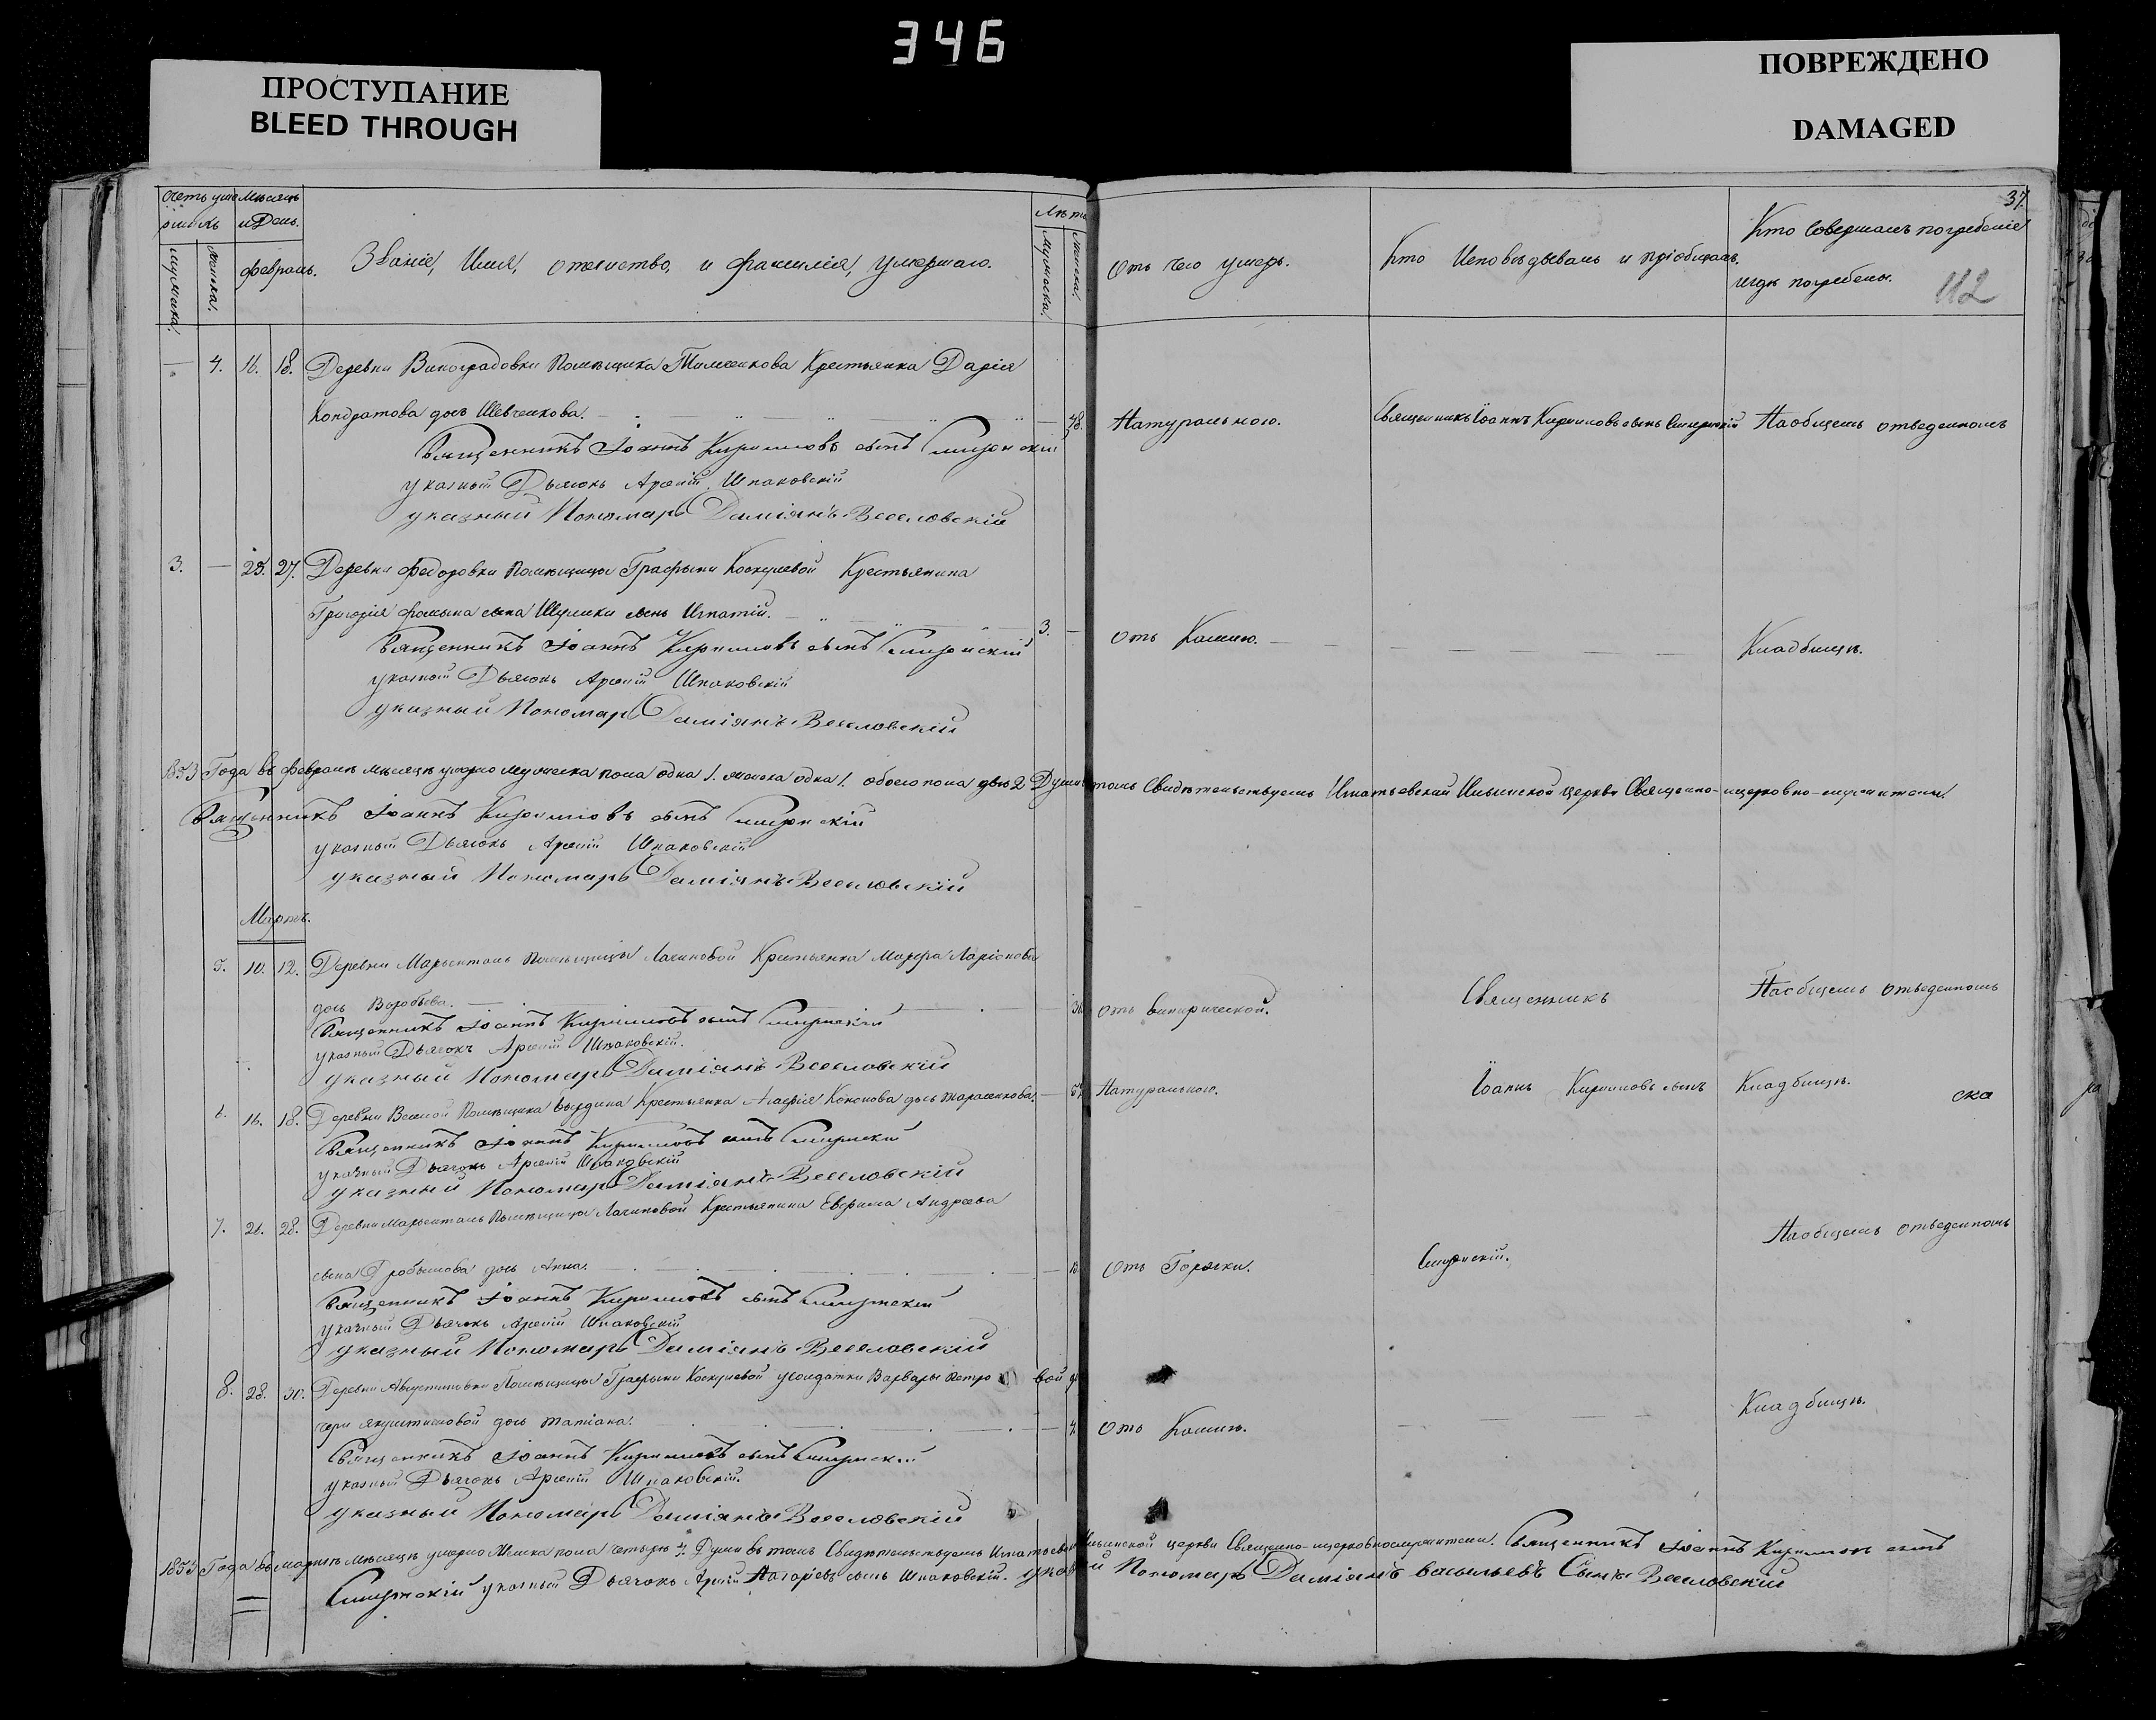 346
ПРОСТУПАНИЕ
BLEED THROUGH
ПОВРЕЖДЕНО
DAMAGED
37.
112
Счетъ уме Мѣсяцъ
ршихъ и День.
Мужеска. Женска. Февраль.
Званіе, Имя, отечество, и фамилія, умершаго.
Лѣта
Мужеска. Женска.
Отъ чего умеръ.
Кто Исповѣдывалъ и пріобщалъ.
Кто совершалъ погребеніе
и гдѣ погребены.
— 4. 16. 18. Деревни Виноградовки Помѣщика Тимченкова Крестьянка Дарія
Кондратова дочь Шевченкова. — 48. Натуральною. Священникъ Іоаннъ Кирилловъ сынъ Наобщемъ отведенномъ
Священникъ Іоаннъ Кирилловъ сынъ
указный Дьячокъ Арсеній Шпаковскій
указный Пономарь Даміянъ Веселовскій
3. — 25. 27. Деревни Федоровки Помѣщицы Графыни Крестьянина
Григорія Фомина сына Шулики сынъ Игнатій. 3. — Отъ Кашлю. — Кладбищѣ.
Священникъ Іоаннъ Кирилловъ сынъ
указный Дьячокъ Арсеній Шпаковскій
указный Пономарь Даміянъ Веселовскій
1853 Года въ Февралѣ мѣсяцѣ умерло мужеска пола одна 1. женска одна 1. обоего пола двѣ 2 Души томъ Свидѣтельствуемъ Игнатьевской Ильинской церкви Священно-ицерковно-служители.
Священникъ Іоаннъ Кирилловъ сынъ
указный Дьячокъ Арсеній Шпаковскій
указный Пономарь Даміянъ Веселовскій
Мартъ.
5. 10. 12. Деревни Марьенталь Помѣщицы Лачиновой Крестьянка Марфа Ларіонова
дочь Воробьева. — отъ Священникъ Наобщемъ отведенномъ
Священникъ Іоаннъ Кирилловъ сынъ
указный Дьячокъ Арсеній Шпаковскій.
указный Пономарь Даміянъ Веселовскій
6. 16. 18. Деревни Веселой Помѣщика Крестьянка Агафія Кононова дочь Тарасенкова. — Натуральною. Іоаннъ Кирилловъ сынъ Кладбищѣ. ска
Священникъ Іоаннъ Кирилловъ сынъ
указный Дьячокъ Арсеній Шпаковскій
указный Пономарь Даміянъ Веселовскій
7. 26. 28. Деревни Марьенталь Помѣщицы Лачиновой Крестьянина Ефрима Андреева Наобщемъ отведенномъ
сына дочь Анна. — Отъ Горячки.
Священникъ Іоаннъ Кирилловъ сынъ
указный Дьячокъ Арсеній Шпаковскій
указный Пономарь Даміянъ Веселовскій
8. 28. 30. Деревни Августиновки Помѣщицы Графыни у солдатки Варвары Петро вой
чери дочь Татіана. — Отъ Кашлю. — Кладбищѣ.
Священникъ Іоаннъ Кирилловъ сынъ
указный Дьячокъ Арсеній Шпаковскій.
указный Пономарь Даміянъ Веселовскій
1853 Года въ мартѣ мѣсяцѣ умерло Женска пола четыре 4. Души въ томъ Свидѣтельствуемъ Ильинской церкви Священно-ицерковнослужители. Священникъ Іоаннъ Кирилловъ сынъ
указный Дьячокъ Арсеній сынъ Шпаковскій. Пономарь Даміянъ Васильевъ Сынъ Веселовскій